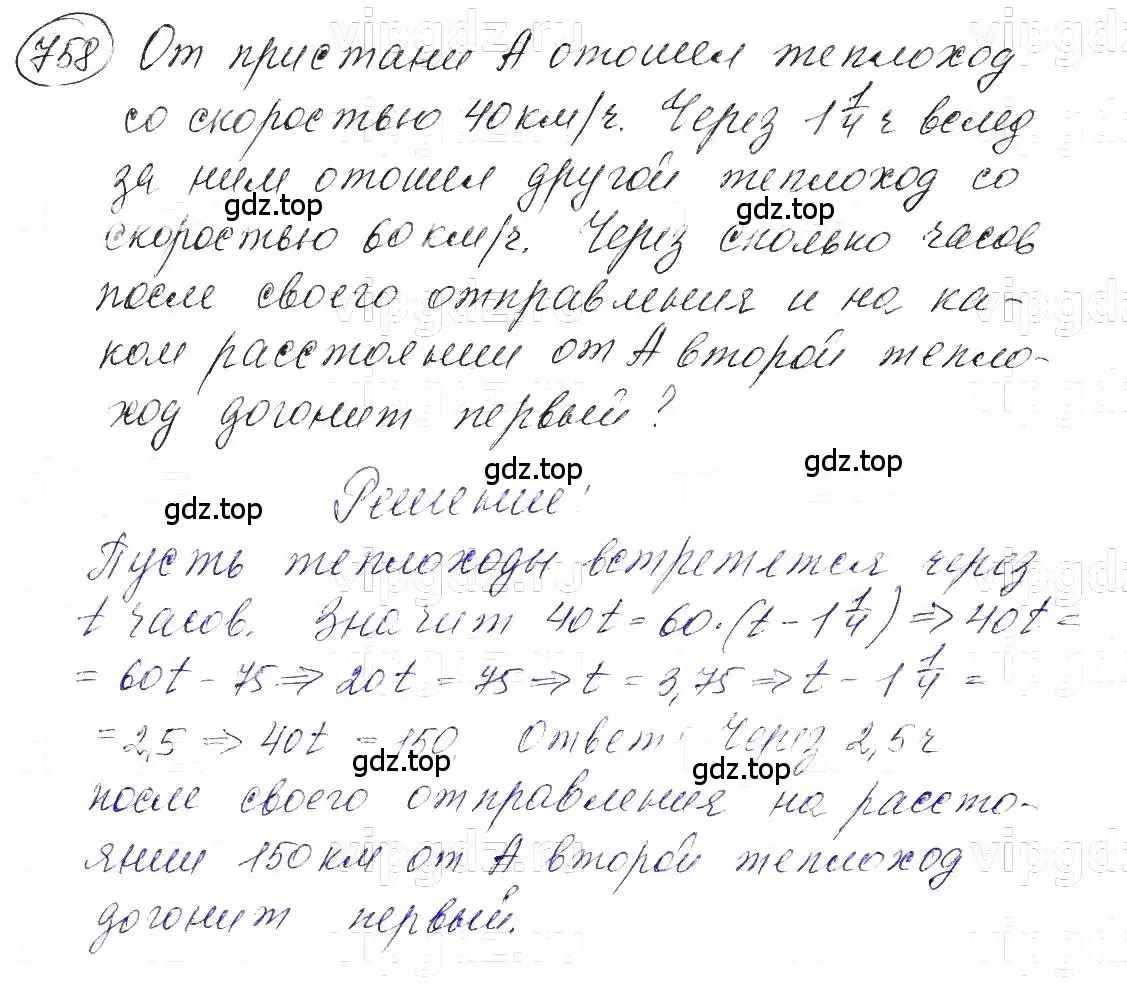 758 От пристани А отошел теплоход
со скоростью 40 км/ч. Через 1 1/4 ч вслед
за ним отошел другой теплоход со
gdz.top gdz.top
скоростью 60 км/ч. Через сколько часов
после своего отправления и на ка-
ком расстоянии от А второй тепло-
ход догонит первый?
gdz.top gdz.top
gdz.top Решение:
Пусть теплоходы встретятся через
t часов. Значит 40t = 60·(t - 1 1/4) ⇒ 40t =
= 60t - 75 ⇒ 20t = 75 ⇒ t = 3,75 ⇒ t - 1 1/4 =
= 2,5 ⇒ 40t = 150. Ответ: Через 2,5 ч
gdz.top gdz.top
после своего отправления на рассто-
янии 150 км от А второй теплоход
догонит первый.